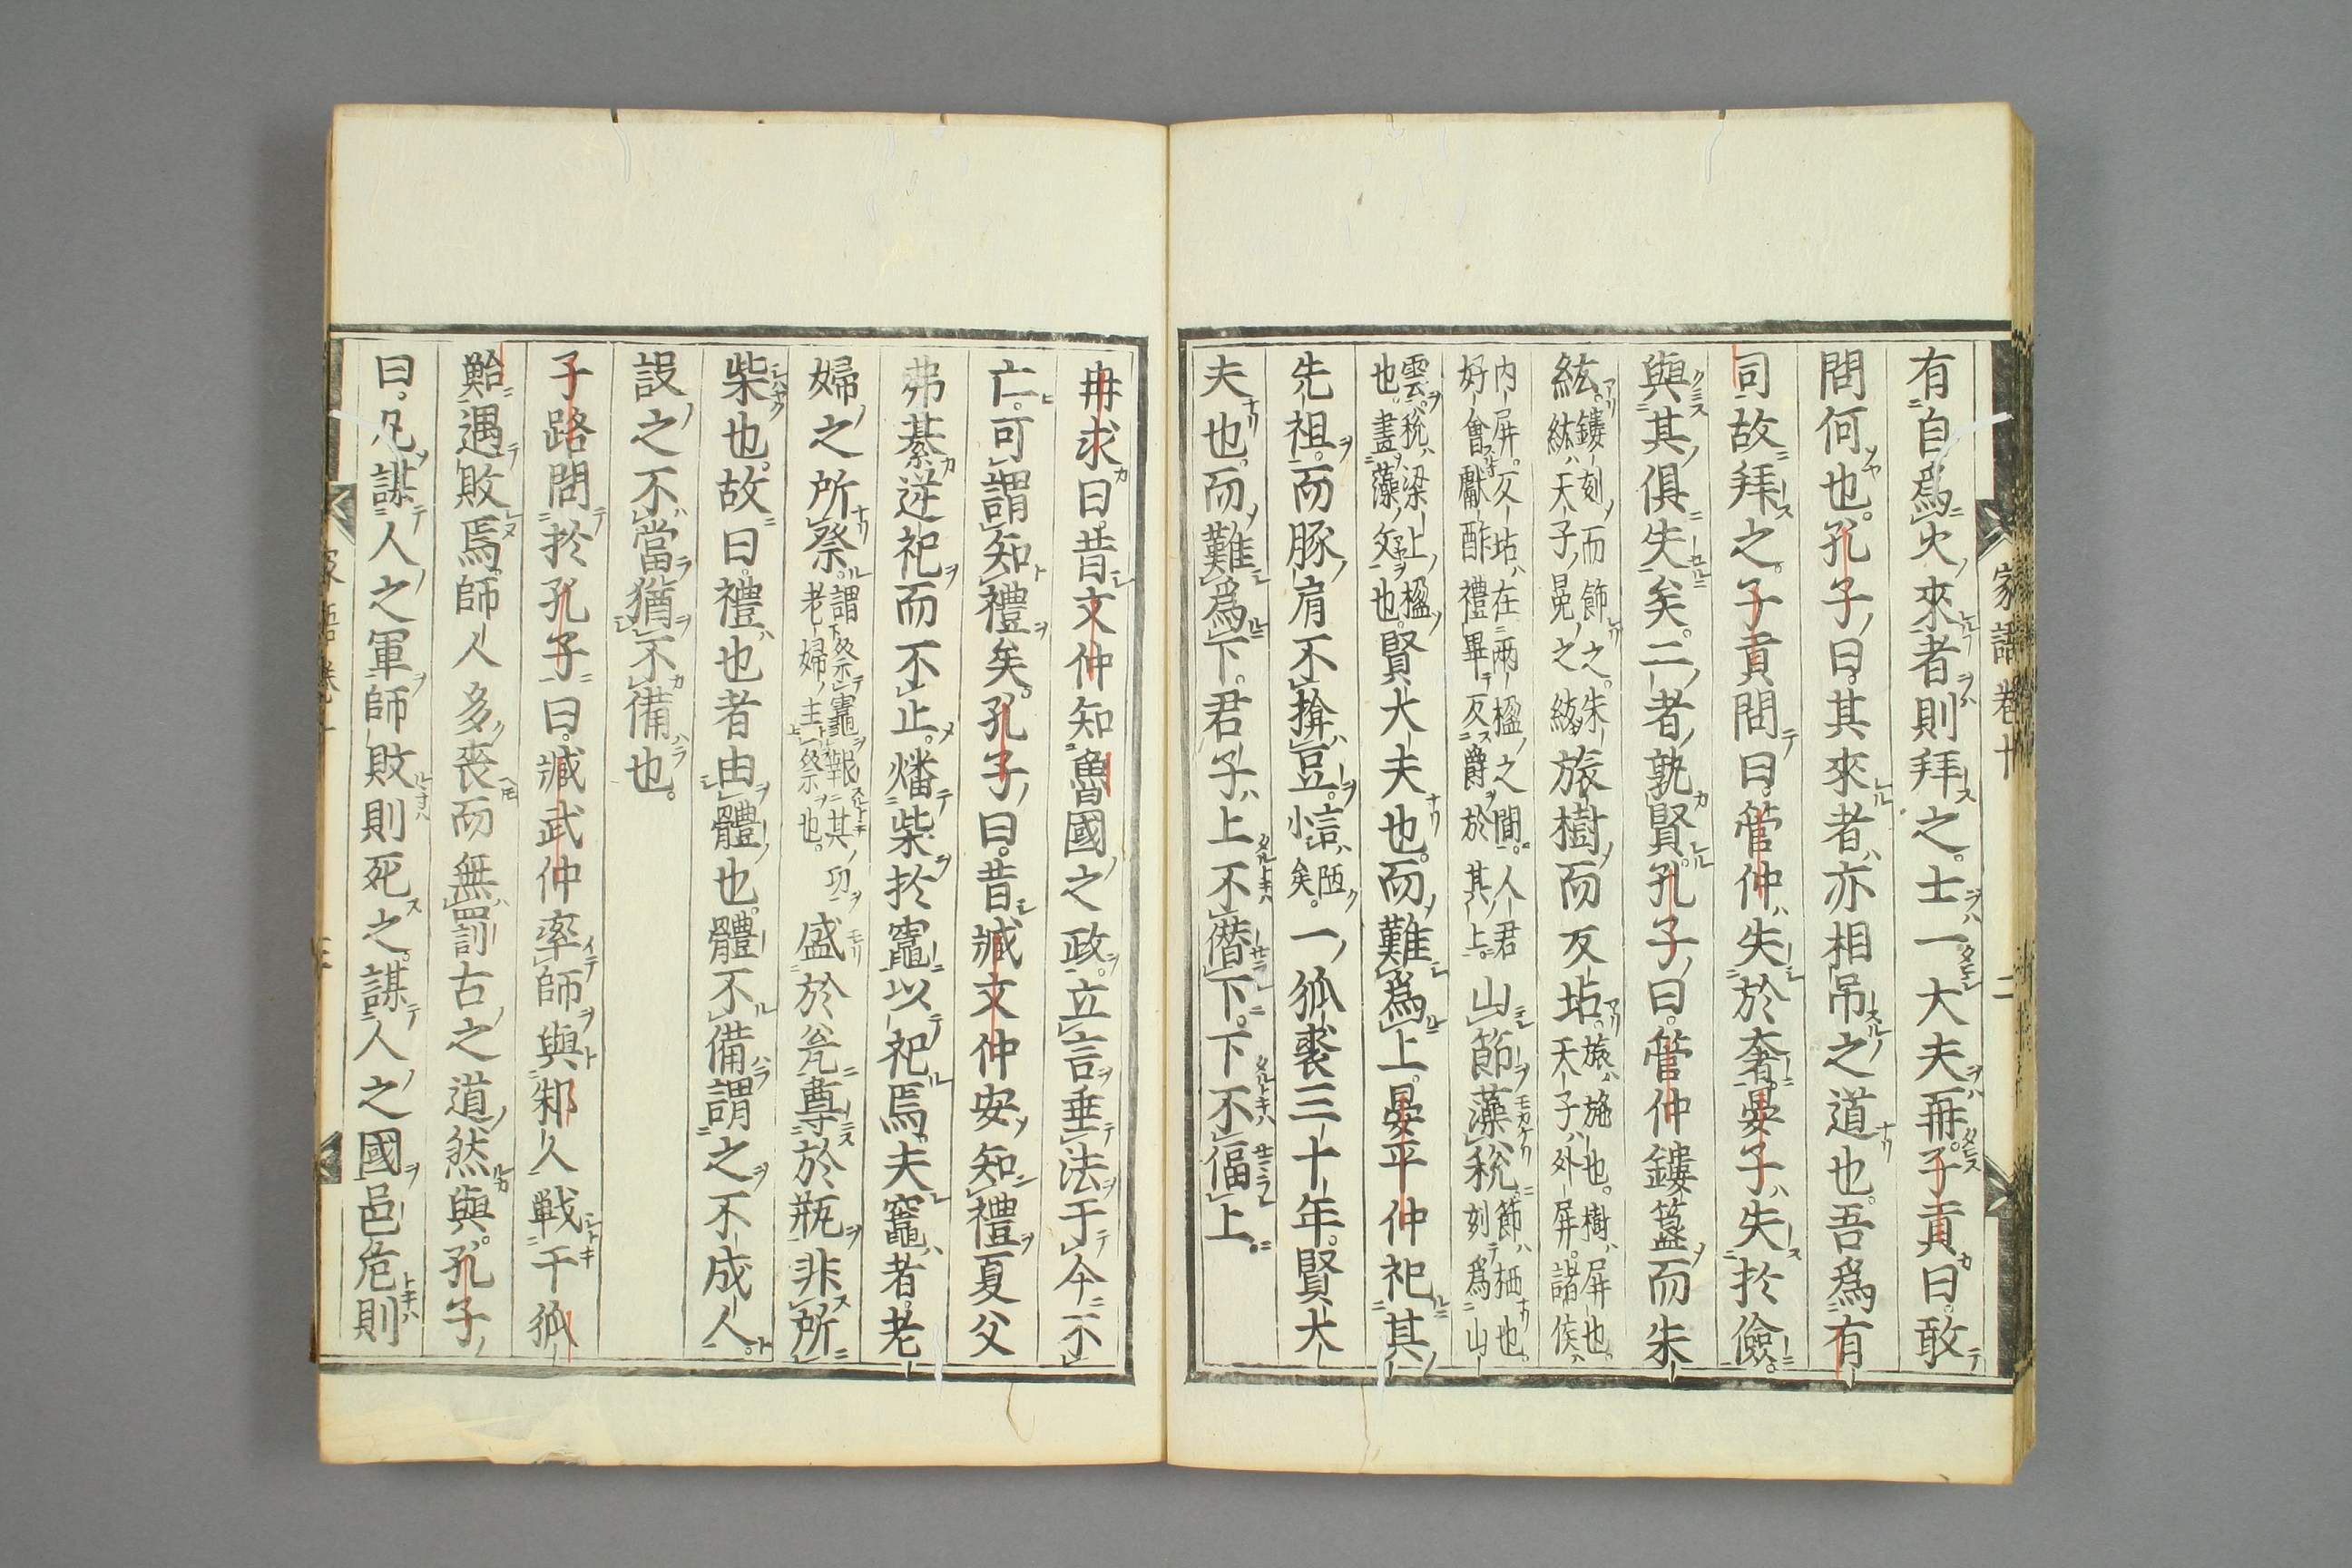 有自爲火來者則拜之。士一。大夫再。子貢曰。敢
問何也。孔子曰。其來者亦相吊之道也。吾爲有
司故拜之。子貢問曰。管仲失於奢。晏子失於儉。
與其俱失矣。二者孰賢。孔子曰。管仲鏤簋而朱
紘。鏤刻而飾之。朱紘天子冕之紘旅樹而反坫。旅施也。樹屏也。天子外屏。諸侯
內屏。反坫在兩楹之間。人君好會獻酢禮畢反爵於其上。山節藻梲。節栭也。刻爲山
雲。梲梁上楹也。畫藻文也。賢大夫也。而難爲上。晏平仲祀其
先祖。而豚肩不揜豆。言陋小矣。一狐裘三十年。賢大
夫也。而難爲下。君子上不僭下。下不偪上。
家語卷十
二
冉求曰。昔文仲知魯國之政。立言垂法于今不
亡。可謂知禮矣。孔子曰。昔臧文仲安知禮夏父
弗綦逆祀而不止。燔柴於竈以祀焉。夫竈者。老
婦之所祭。謂祭竈報其功老婦主祭也。盛於瓮尊於瓶非所
柴也。故曰。禮也者由體也。體不備謂之不成人。
設之不當猶不備也。
子路問於孔子曰。臧武仲率師與邾人戰于狐
鮐遇敗焉。師人多喪而無罰古之道然與。孔子
曰。凡謀人之軍師敗則死之。謀人之國邑危則